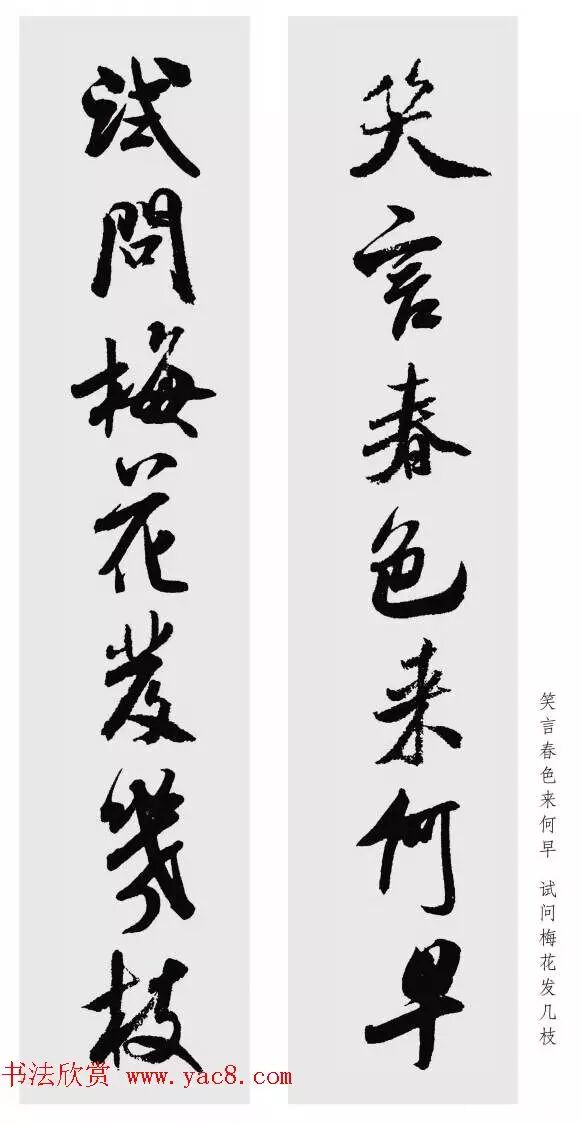 笑言春色来何早
試問梅花發幾枝
笑言春色来何早 试问梅花发几枝
书法欣赏 www.yac8.com